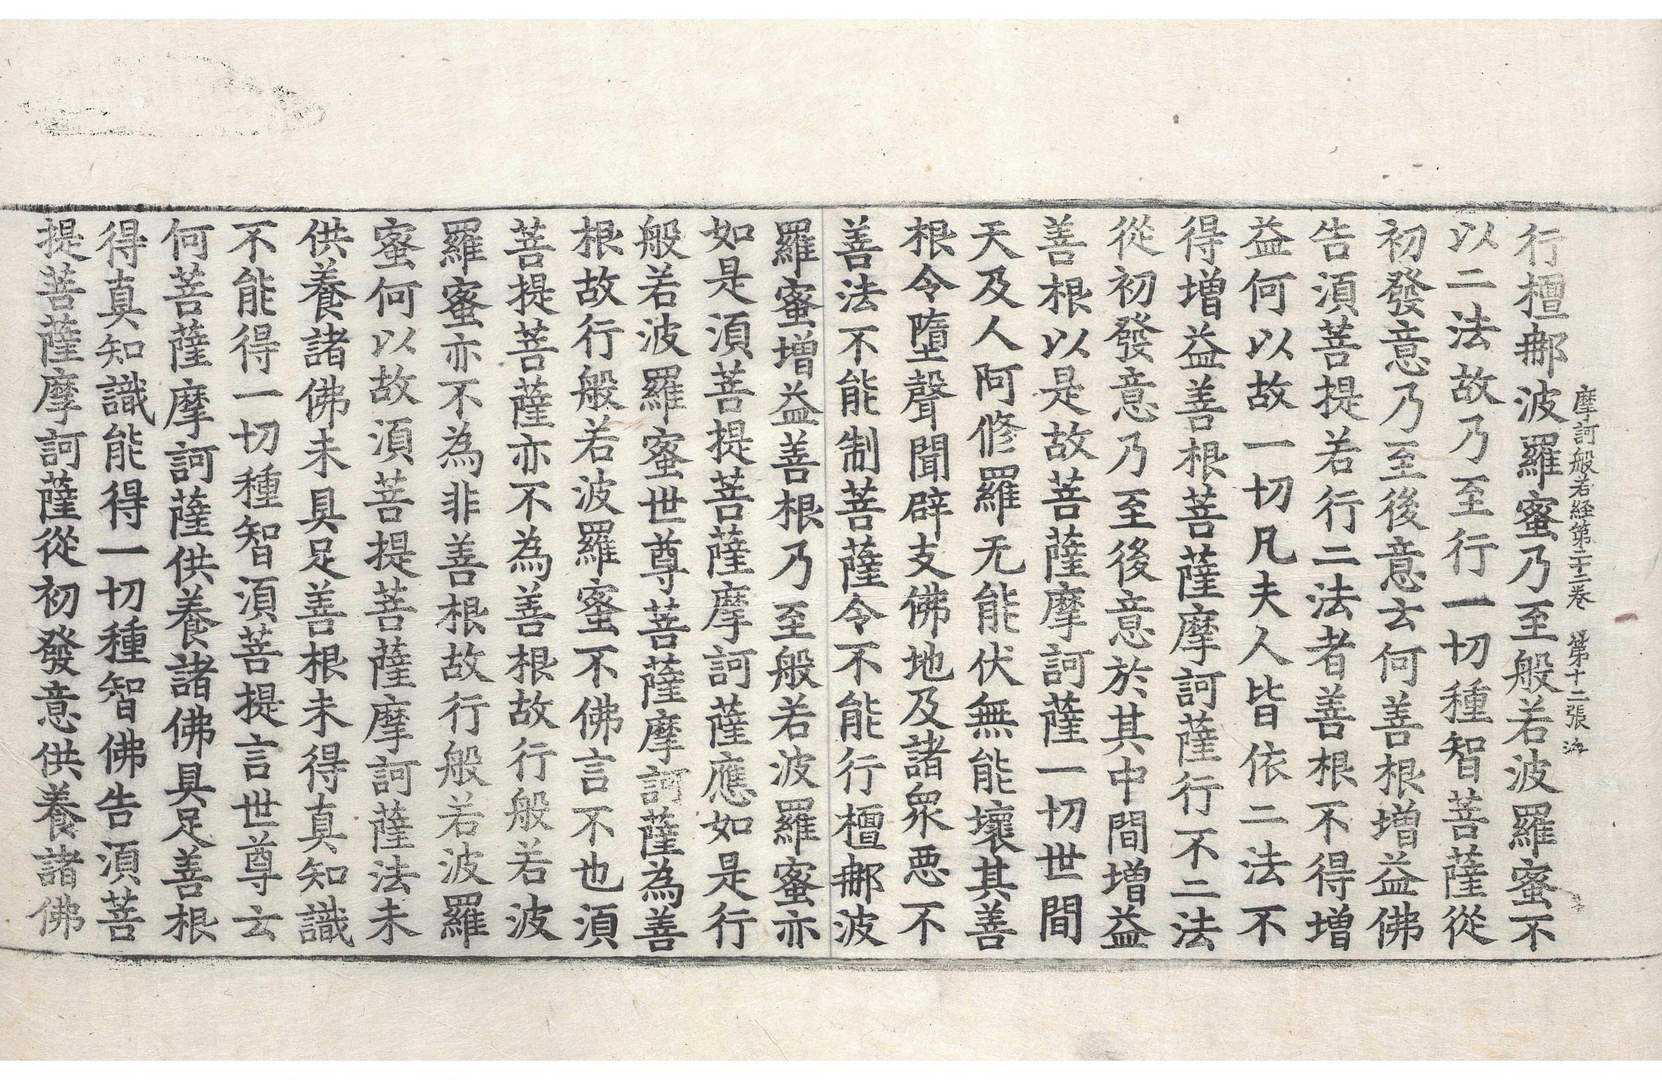 摩訶般若経第二十二巻　第十二張海
行檀那波羅蜜乃至般若波羅蜜不
以二法故乃至行一切種智菩薩從
初發意乃至後意云何善根增益佛
告湏菩提若行二法者善根不得增
益何以故一切凡夫人皆依二法不
得增益善根菩薩摩訶薩行不二法
從初發意乃至後意於其中間增益
善根以是故菩薩摩訶薩一切世間
天及人阿修羅无能伏無能壞其善
根令墮聲聞辟支佛地及諸眾悪不
善法不能制菩薩令不能行檀那波
羅蜜增益善根乃至般若波羅蜜亦
如是湏菩提菩薩摩訶薩應如是行
般若波羅蜜世尊菩薩摩訶薩為善
根故行般若波羅蜜不佛言不也湏
菩提菩薩亦不為善根故行般若波
羅蜜亦不為非善根故行般若波羅
蜜何以故湏菩提菩薩摩訶薩法未
供養諸佛未具足善根未得真知識
不能得一切種智湏菩提言世尊云
何菩薩摩訶薩供養諸佛具足善根
得真知識能得一切種智佛告湏菩
提菩薩摩訶薩從初發意供養諸佛